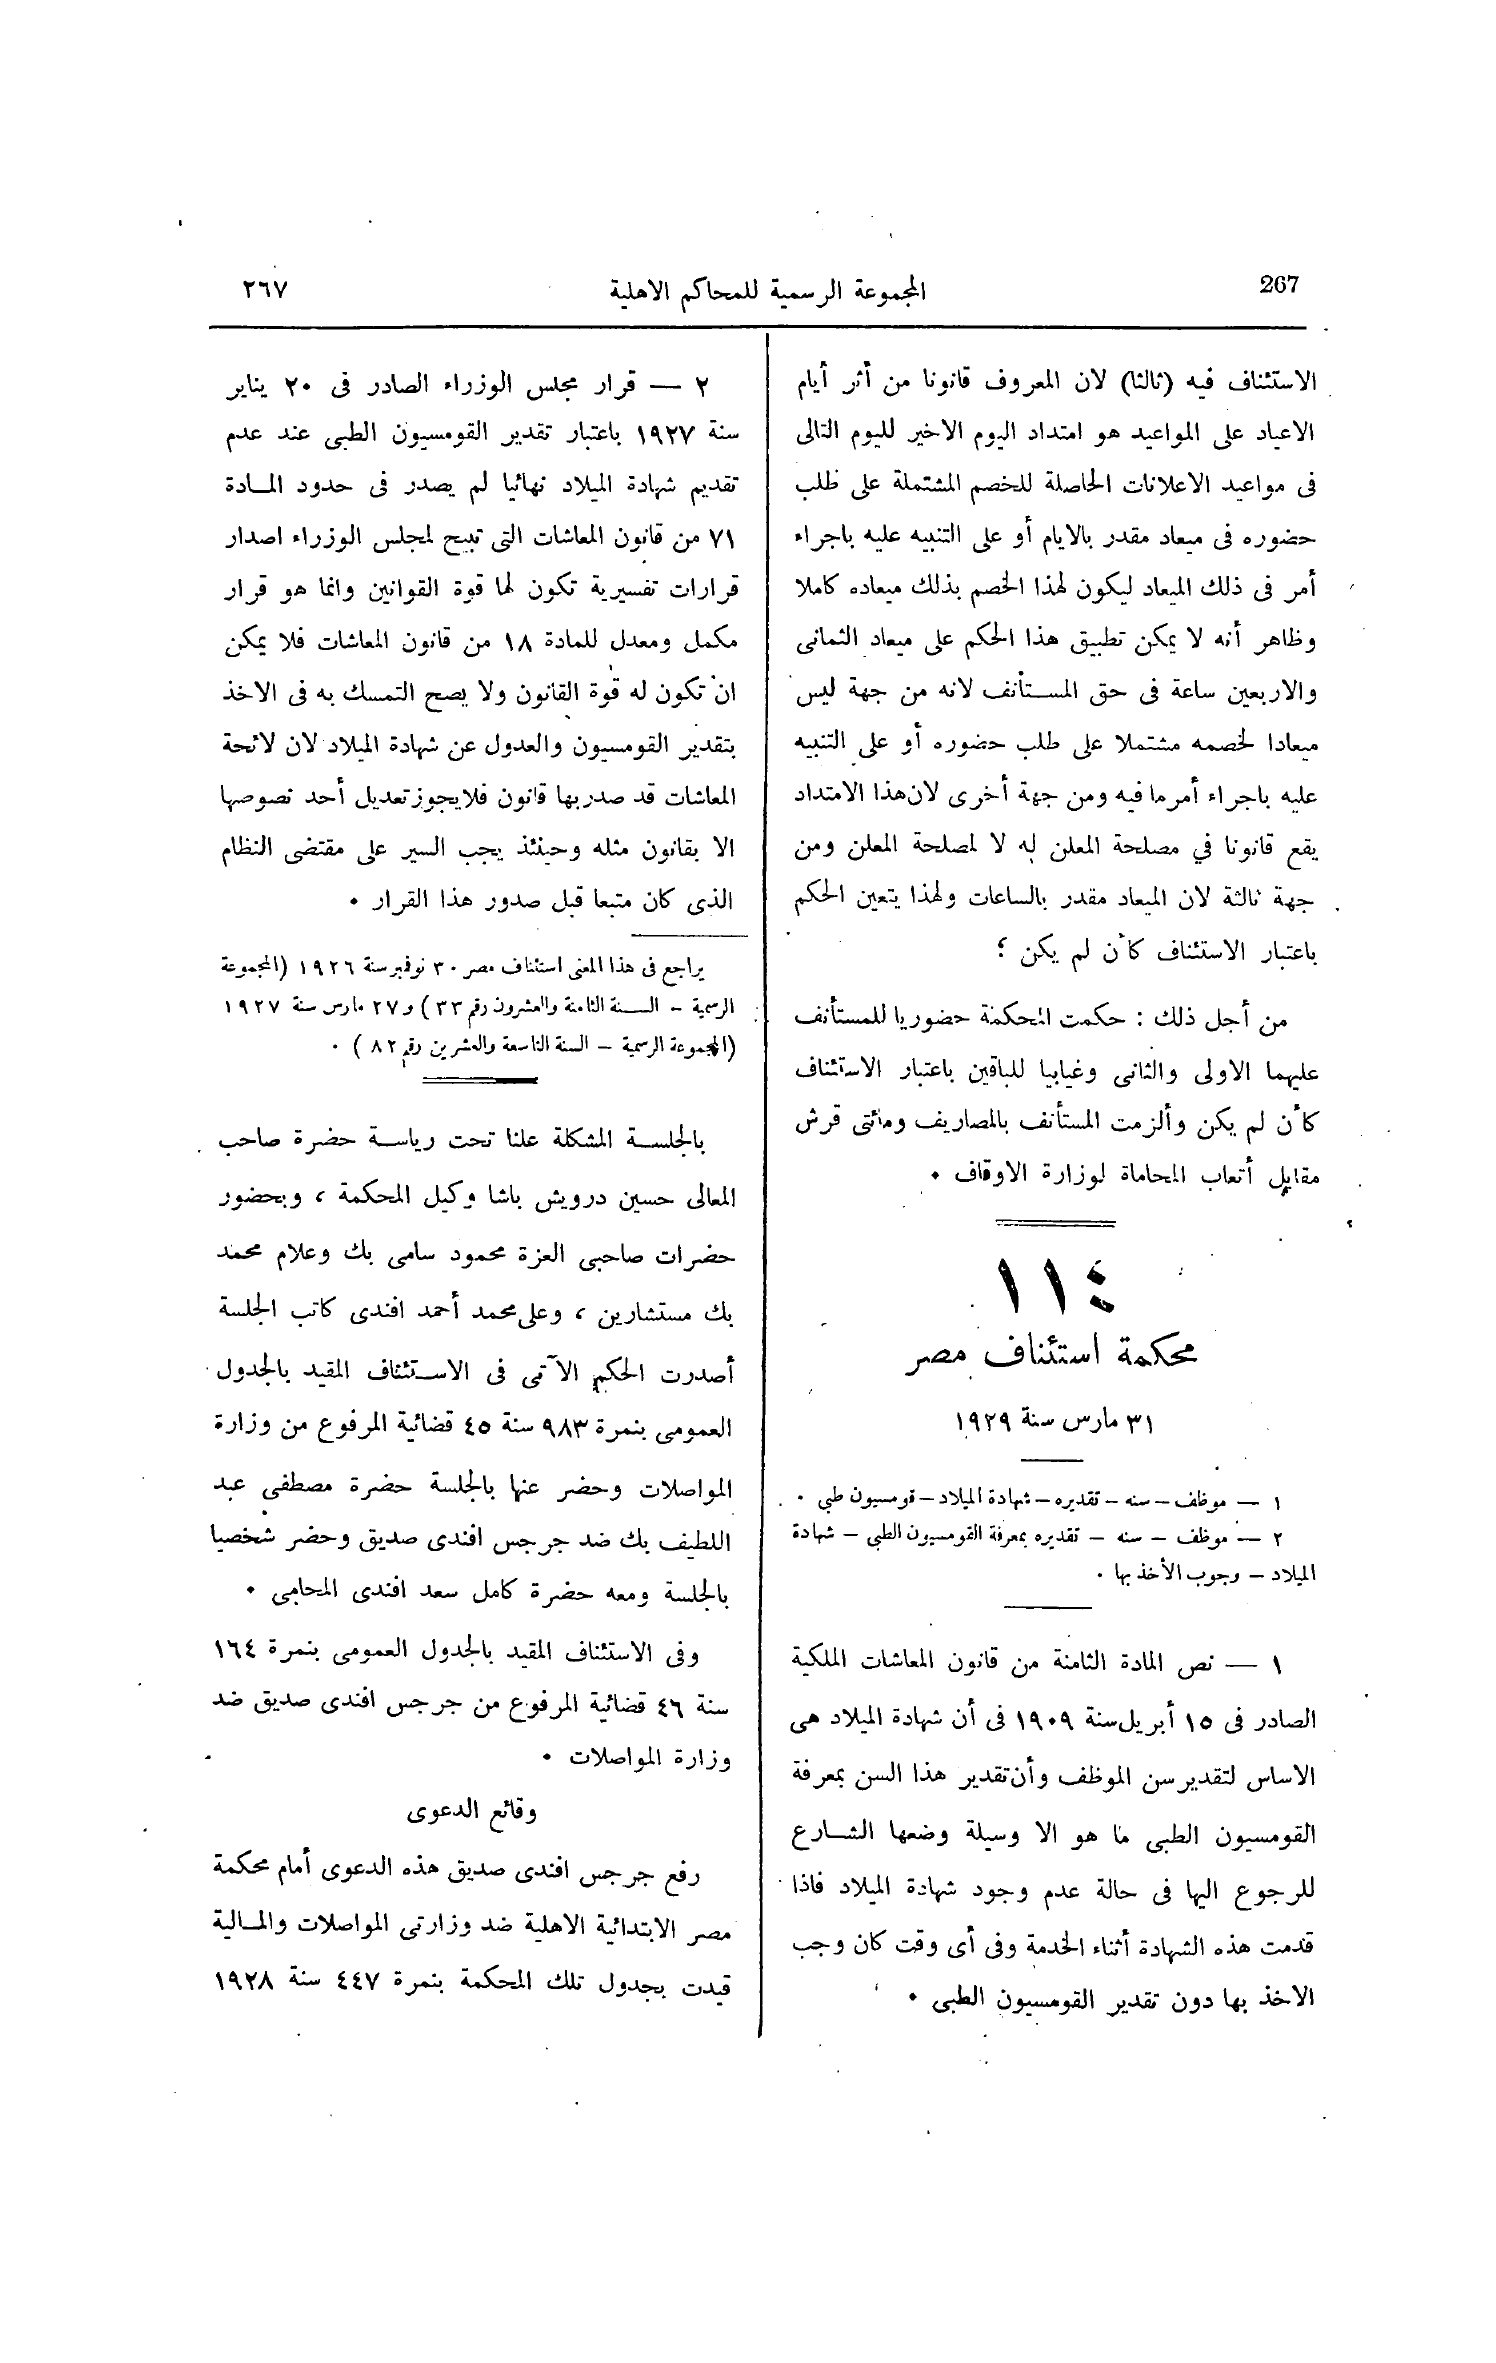 267
المجموعة الرسمية للمحاكم الاهلية
٢٦٧
الاستئناف فيه (ثالثا) لان المعروف قانونا من أثر أيام
الاعياد على المواعيد هو امتداد اليوم الاخير لليوم التالى
فى مواعيد الاعلانات الحاصلة للخصم المشتملة على طلب
حضوره فى ميعاد مقدر بالايام أو على التنبيه عليه باجراء
أمر فى ذلك الميعاد ليكون لهذا الخصم بذلك ميعاده كاملا
وظاهر أنه لا يمكن تطبيق هذا الحكم على ميعاد الثمانى
والاربعين ساعة فى حق المستأنف لانه من جهة ليس
ميعادا لخصمه مشتملا على طلب حضوره أو على التنبيه
عليه باجراء أمر ما فيه ومن جهة أخرى لان هذا الامتداد
يقع قانونا في مصلحة المعلن له لا لمصلحة المعلن ومن
جهة ثالثة لان الميعاد مقدر بالساعات ولهذا يتعين الحكم
باعتبار الاستئناف كأن لم يكن ؛
من أجل ذلك : حكمت المحكمة حضوريا للمستأنف
عليهما الاولى والثانى وغيابيا للباقين باعتبار الاستئناف
كأن لم يكن وألزمت المستأنف بالمصاريف ومائتى قرش
مقابل أتعاب المحاماة لوزارة الاوقاف ٠
١١٤
محكمة استئناف مصر
٣١ مارس سنة ١٩٢٩
١ — موظف – سنه – تقديره – شهادة الميلاد – قومسيون طبي ٠
٢ — موظف – سنه – تقديره بمعرفة القومسيون الطبى – شهادة
الميلاد – وجوب الأخذ بها ٠
١ — نص المادة الثامنة من قانون المعاشات الملكية
الصادر فى ١٥ أبريل سنة ١٩٠٩ فى أن شهادة الميلاد هى
الاساس لتقدير سن الموظف وأن تقدير هذا السن بمعرفة
القومسيون الطبى ما هو الا وسيلة وضعها الشارع
للرجوع اليها فى حالة عدم وجود شهادة الميلاد فاذا
قدمت هذه الشهادة أثناء الخدمة وفى أى وقت كان وجب
الاخذ بها دون تقدير القومسيون الطبى ٠
٢ — قرار مجلس الوزراء الصادر فى ٢٠ يناير
سنة ١٩٢٧ باعتبار تقدير القومسيون الطبى عند عدم
تقديم شهادة الميلاد نهائيا لم يصدر فى حدود المادة
٧١ من قانون المعاشات التى تبيح لمجلس الوزراء اصدار
قرارات تفسيرية تكون لها قوة القوانين وانما هو قرار
مكمل ومعدل للمادة ١٨ من قانون المعاشات فلا يمكن
ان تكون له قوة القانون ولا يصح التمسك به فى الاخذ
بتقدير القومسيون والعدول عن شهادة الميلاد لان لائحة
المعاشات قد صدر بها قانون فلا يجوز تعديل أحد نصوصها
الا بقانون مثله وحينئذ يجب السير على مقتضى النظام
الذى كان متبعا قبل صدور هذا القرار ٠
يراجع فى هذا المعنى استئناف مصر ٣٠ نوفمبر سنة ١٩٢٦ (المجموعة
الرسمية – السنة الثامنة والعشرون رقم ٣٣) و ٢٧ مارس سنة ١٩٢٧
(المجموعة الرسمية – السنة التاسعة والعشرين رقم ٨٢) ٠
بالجلسة المشكلة علنا تحت رياسة حضرة صاحب
المعالى حسين درويش باشا وكيل المحكمة ، وبحضور
حضرات صاحبى العزة محمود سامى بك وعلام محمد
بك مستشارين ، وعلى محمد أحمد افندى كاتب الجلسة
أصدرت الحكم الآتى فى الاستئناف المقيد بالجدول
العمومى بنمرة ٩٨٣ سنة ٤٥ قضائية المرفوع من وزارة
المواصلات وحضر عنها بالجلسة حضرة مصطفى عبد
اللطيف بك ضد جرجس افندى صديق وحضر شخصيا
بالجلسة ومعه حضرة كامل سعد افندى المحامى ٠
وفى الاستئناف المقيد بالجدول العمومى بنمرة ١٦٤
سنة ٤٦ قضائية المرفوع من جرجس افندى صديق ضد
وزارة المواصلات ٠
وقائع الدعوى
رفع جرجس افندى صديق هذه الدعوى أمام محكمة
مصر الابتدائية الاهلية ضد وزارتى المواصلات والمالية
قيدت بجدول تلك المحكمة بنمرة ٤٤٧ سنة ١٩٢٨